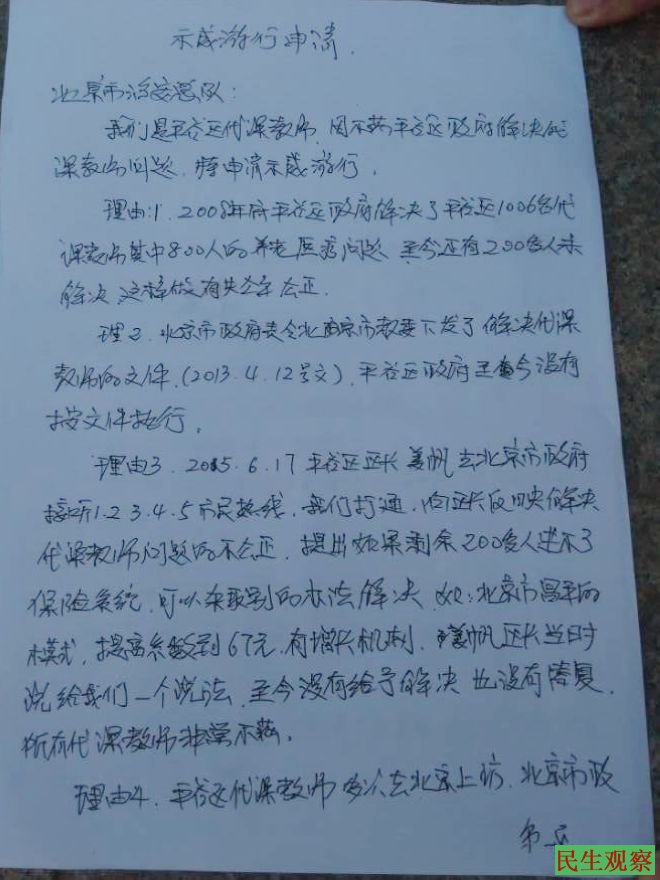 示威游行申请.
北京市治安总队:
我们是平谷区代课教师,因不满平谷区政府解决代
课教师问题,特申请示威游行.
理由:1.2008年府平谷区政府解决了平谷区1006名代
课教师其中800人的养老医疗问题 至今还有200多人未
解决 这样做有失公平公正.
理2.北京市政府责令北京市教委下发了解决代课
教师的文件.(2013.4.12号文),平谷区政府至今没有
按文件执行.
理由3.2015.6.17平谷区区长姜帆去北京市政府
接听1.2.3.4.5市民热线.我们打通,向区长反映解决
代课教师问题的不公正.提出如果剩余200多人进不了
保险系统,可以采取别的办法解决 如:北京市昌平的
模式,提高系数到67元.有增长机制.姜帆区长当日时
说给我们一个说法.至今没有给予解决 也没有答复.
所有代课教师非常不满.
理由4.平谷区代课教师多次去北京上访.北京市政
民生观察